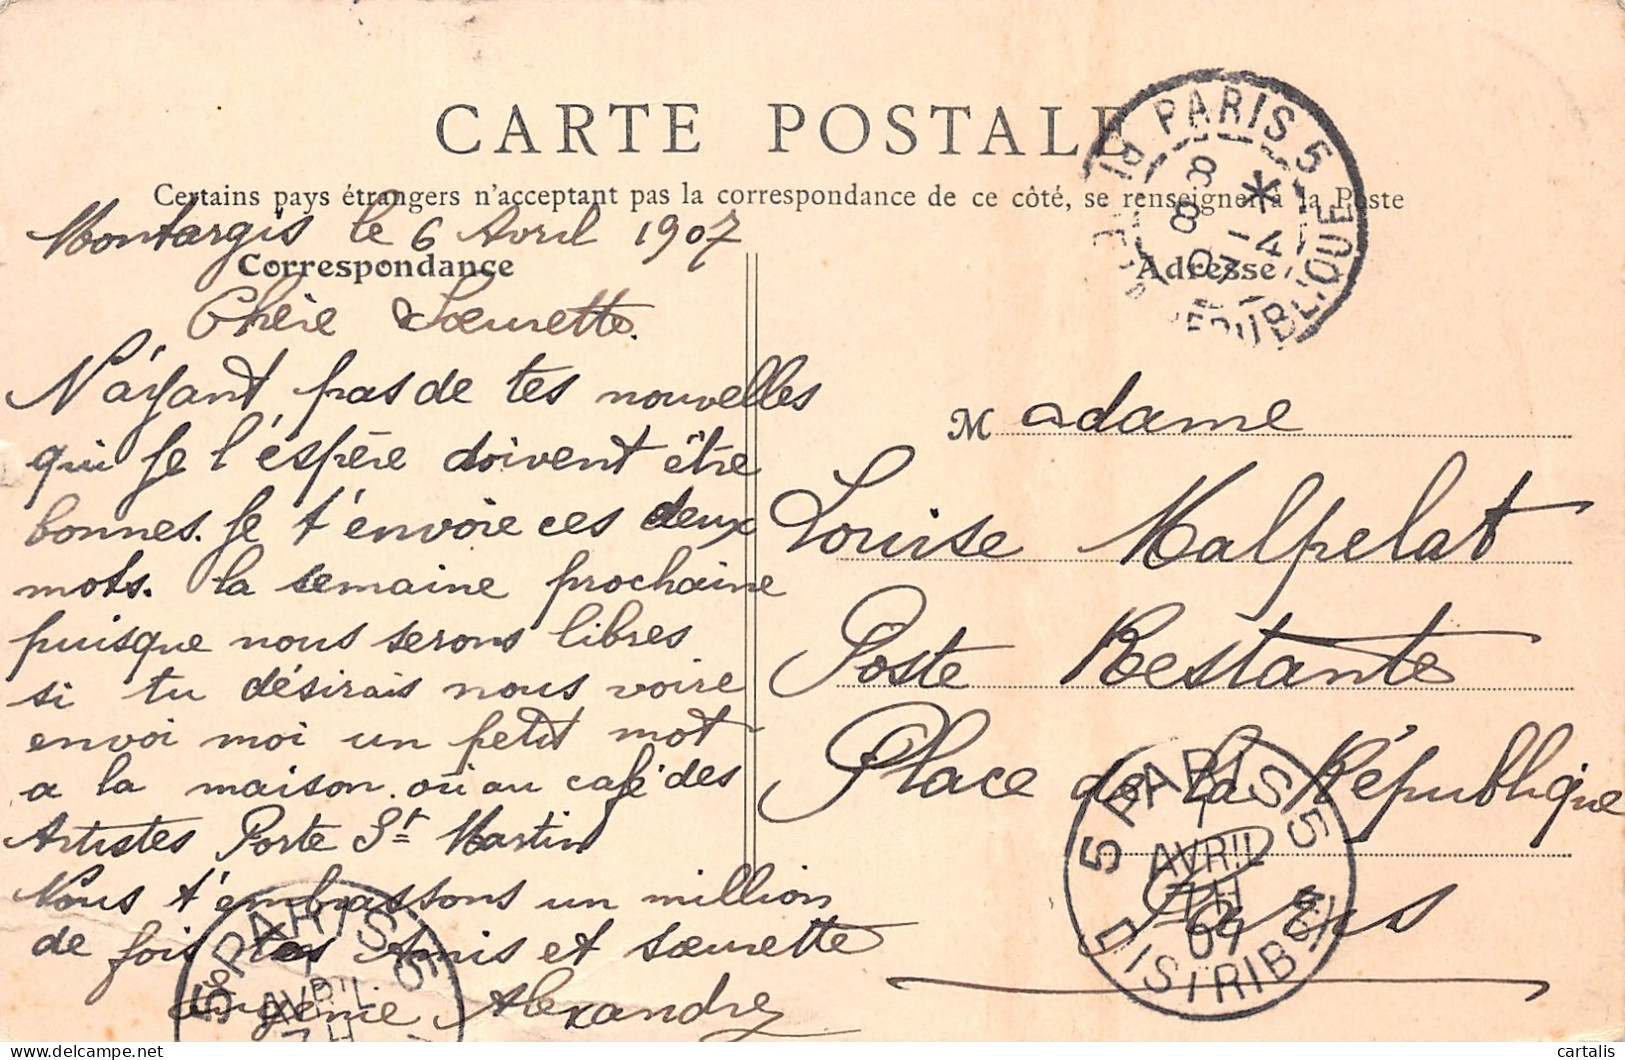 CARTE POSTALE
Certains pays étrangers n'acceptent pas la correspondance de ce côté, se renseigner à la Poste
Montargis le 6 Avril 1907
Correspondance
Chère Sœurette.
N'ayant pas de tes nouvelles
qui je l'espère doivent être
bonnes. Je t'envoie ces deux
mots. la semaine prochaine
puisque nous serons libres
si tu désirais nous voire
envoi moi un petit mot
a la maison. ou au café des
Artistes Porte St Martin
Nous t'embrassons un million
de fois tes Amis et sœurette
Eugénie Alexandre
Adresse
Madame
Louise Malpelat
Poste Restante
Place de la République
Paris
PARIS 5
8 *
8 -4
07
REPUBLIQUE
5 PARIS 5
AVRIL
07
DISTRIBON
5 PARIS 5
AVRIL
delcampe.net
cartalis